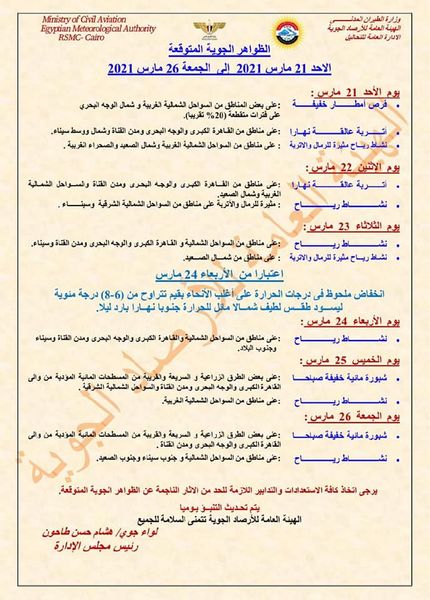 Ministry of Civil Aviation
Egyptian Meteorological Authority
RSMC- Cairo
وزارة الطيران المدنـــى
الهيئة العامة للأرصاد الجوية
الإدارة العامة للتحاليل
الظواهر الجوية المتوقعة
الاحد 21 مارس 2021 إلى الجمعة 26 مارس 2021
يوم الأحد 21 مارس :
فرص أمطار خفيفة :على بعض المناطق من السواحل الشمالية الغربية و شمال الوجه البحري
على فترات متقطعة (20% تقريبا).
أتربة عالقة نهارا :على مناطق من القاهرة الكبرى والوجه البحرى ومدن القناة وشمال ووسط سيناء.
نشاط رياح مثيرة للرمال والاتربة :على مناطق من السواحل الشمالية الغربية وشمال الصعيد والصحراء الغربية .
يوم الاثنين 22 مارس :
أتربة عالقة نهارا :على مناطق من القاهرة الكبرى والوجه البحرى ومدن القناة والسواحل الشمالية
الغربية وشمال الصعيد.
نشاط رياح : مثيرة للرمال والأتربة على مناطق من السواحل الشمالية الشرقية وسيناء .
يوم الثلاثاء 23 مارس :
نشاط رياح :على مناطق من السواحل الشمالية و القاهرة الكبرى والوجه البحرى ومدن القناة وسيناء.
نشاط رياح مثيرة للرمال والاتربة :على مناطق من شمال الصعيد.
اعتبارا من الأربعاء 24 مارس
انخفاض ملحوظ فى درجات الحرارة على أغلب الأنحاء بقيم تتراوح من (6-8) درجة مئوية
ليسود طقس لطيف شمالا مائل للحرارة جنوبا نهارا بارد ليلا.
يوم الأربعاء 24 مارس :
نشاط رياح :على مناطق من السواحل الشمالية و القاهرة الكبرى والوجه البحرى ومدن القناة وسيناء
وجنوب البلاد.
يوم الخميس 25 مارس :
شبورة مائية خفيفة صباحا :على بعض الطرق الزراعية و السريعة والقريبة من المسطحات المائية المؤدية من والى
القاهرة الكبرى والوجه البحرى ومدن القناة والسواحل الشمالية الشرقية .
نشاط رياح :على مناطق من السواحل الشمالية الغربية.
يوم الجمعة 26 مارس :
شبورة مائية خفيفة صباحا :على بعض الطرق الزراعية و السريعة والقريبة من المسطحات المائية المؤدية من والى
القاهرة الكبرى والوجه البحرى ومدن القناة .
نشاط رياح :على مناطق من السواحل الشمالية و جنوب سيناء وجنوب الصعيد.
يرجى اتخاذ كافة الاستعدادات والتدابير اللازمة للحد من الاثار الناجمة عن الظواهر الجوية المتوقعة.
يتم تحديث التنبؤ يوميا
الهيئة العامة للأرصاد الجوية تتمنى السلامة للجميع
لواء جوي/ هشام حسن طاحون
رئيس مجلس الإدارة
الهيئة العامة للأرصاد الجوية